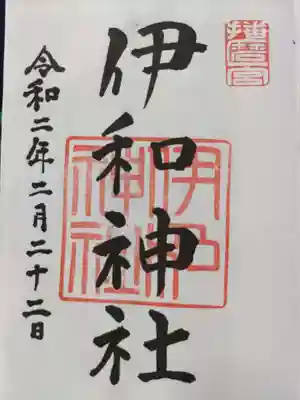 播磨宮
伊和神社
伊和神社
令和二年二月二十二日